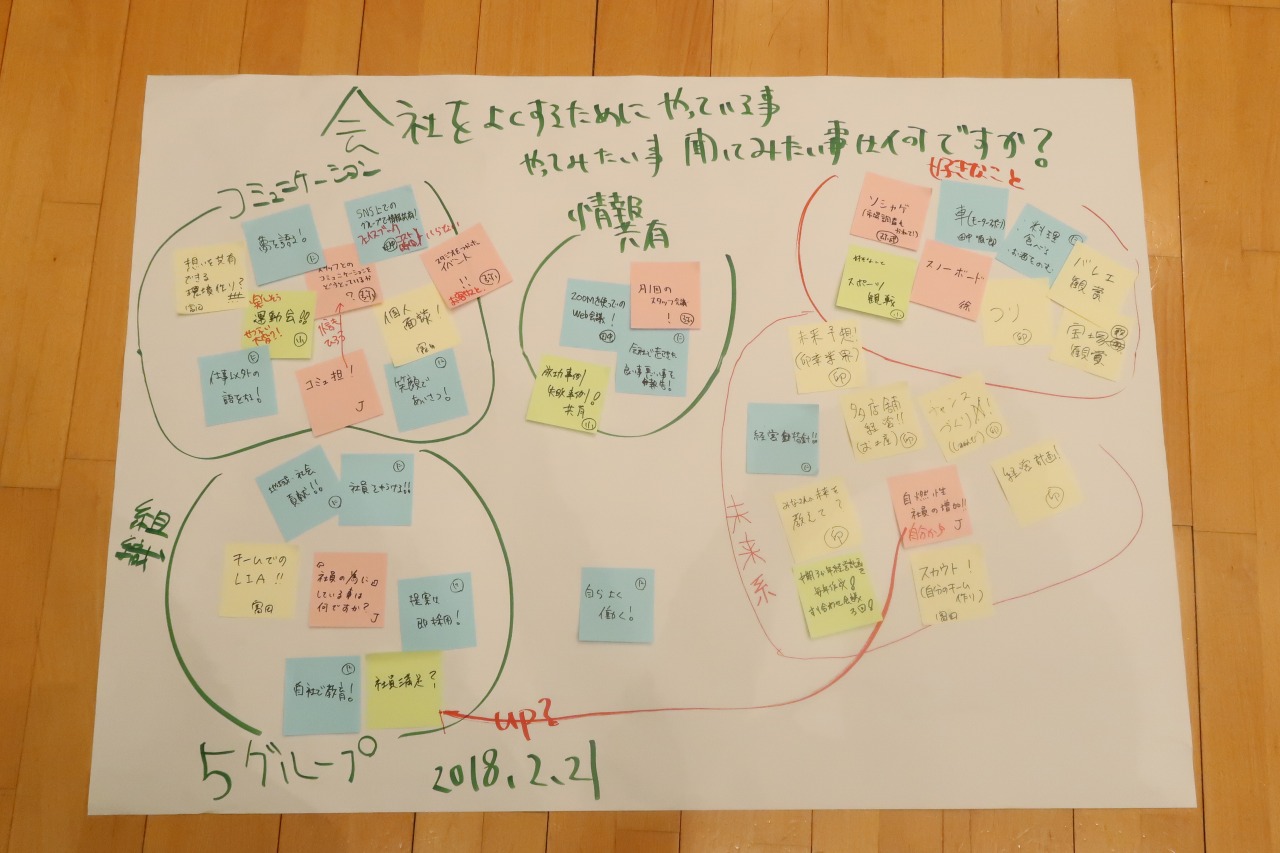 会社をよくするためにやっている事
やってみたい事 聞いてみたい事は何ですか?
コミュニケーション
夢を語る!
SNS上での
グループで情報共有!
フェイスブック
想いを共有
できる
環境作り?
富田
スタッフとの
コミュニケーションを
どうとっているか
?
イベント
!!
楽しそう
運動会!!
個人
面談!
仕事以外の
話をする!
コミュ担!
J
笑顔で
あいさつ!
情報
共有
ZOOMを使っての
Web会議!
月1回の
スタッフ会議
!
成功事例
失敗事例!
共有
会社で起きた
良い事悪い事を
報告!
好きなこと
ソシャゲ
車(モータースポーツ)
料理
食べる
お酒をのむ
バレエ
観賞
好きなこと
スポーツ
観戦
スノーボード
徐
つり
宝塚
観賞
未来系
未来予想!
(卯業界)
経営動指針!!
多店舗
経営!!
チャンス
づくり!
経営計画!
みなさんの未来を
教えて?
自燃性
社員の増加!!
自分から J
毎年作成!
スカウト!
(自分のチーム
作り)
富田
組織
地域社会
貢献!!
社員をやる!!
チームでの
LIA!!
富田
社員の為に
している事は
何ですか?
J
提案は
即採用!
自社で教育!
社員満足?
up?
自らよく
働く!
5グループ
2018.2.21